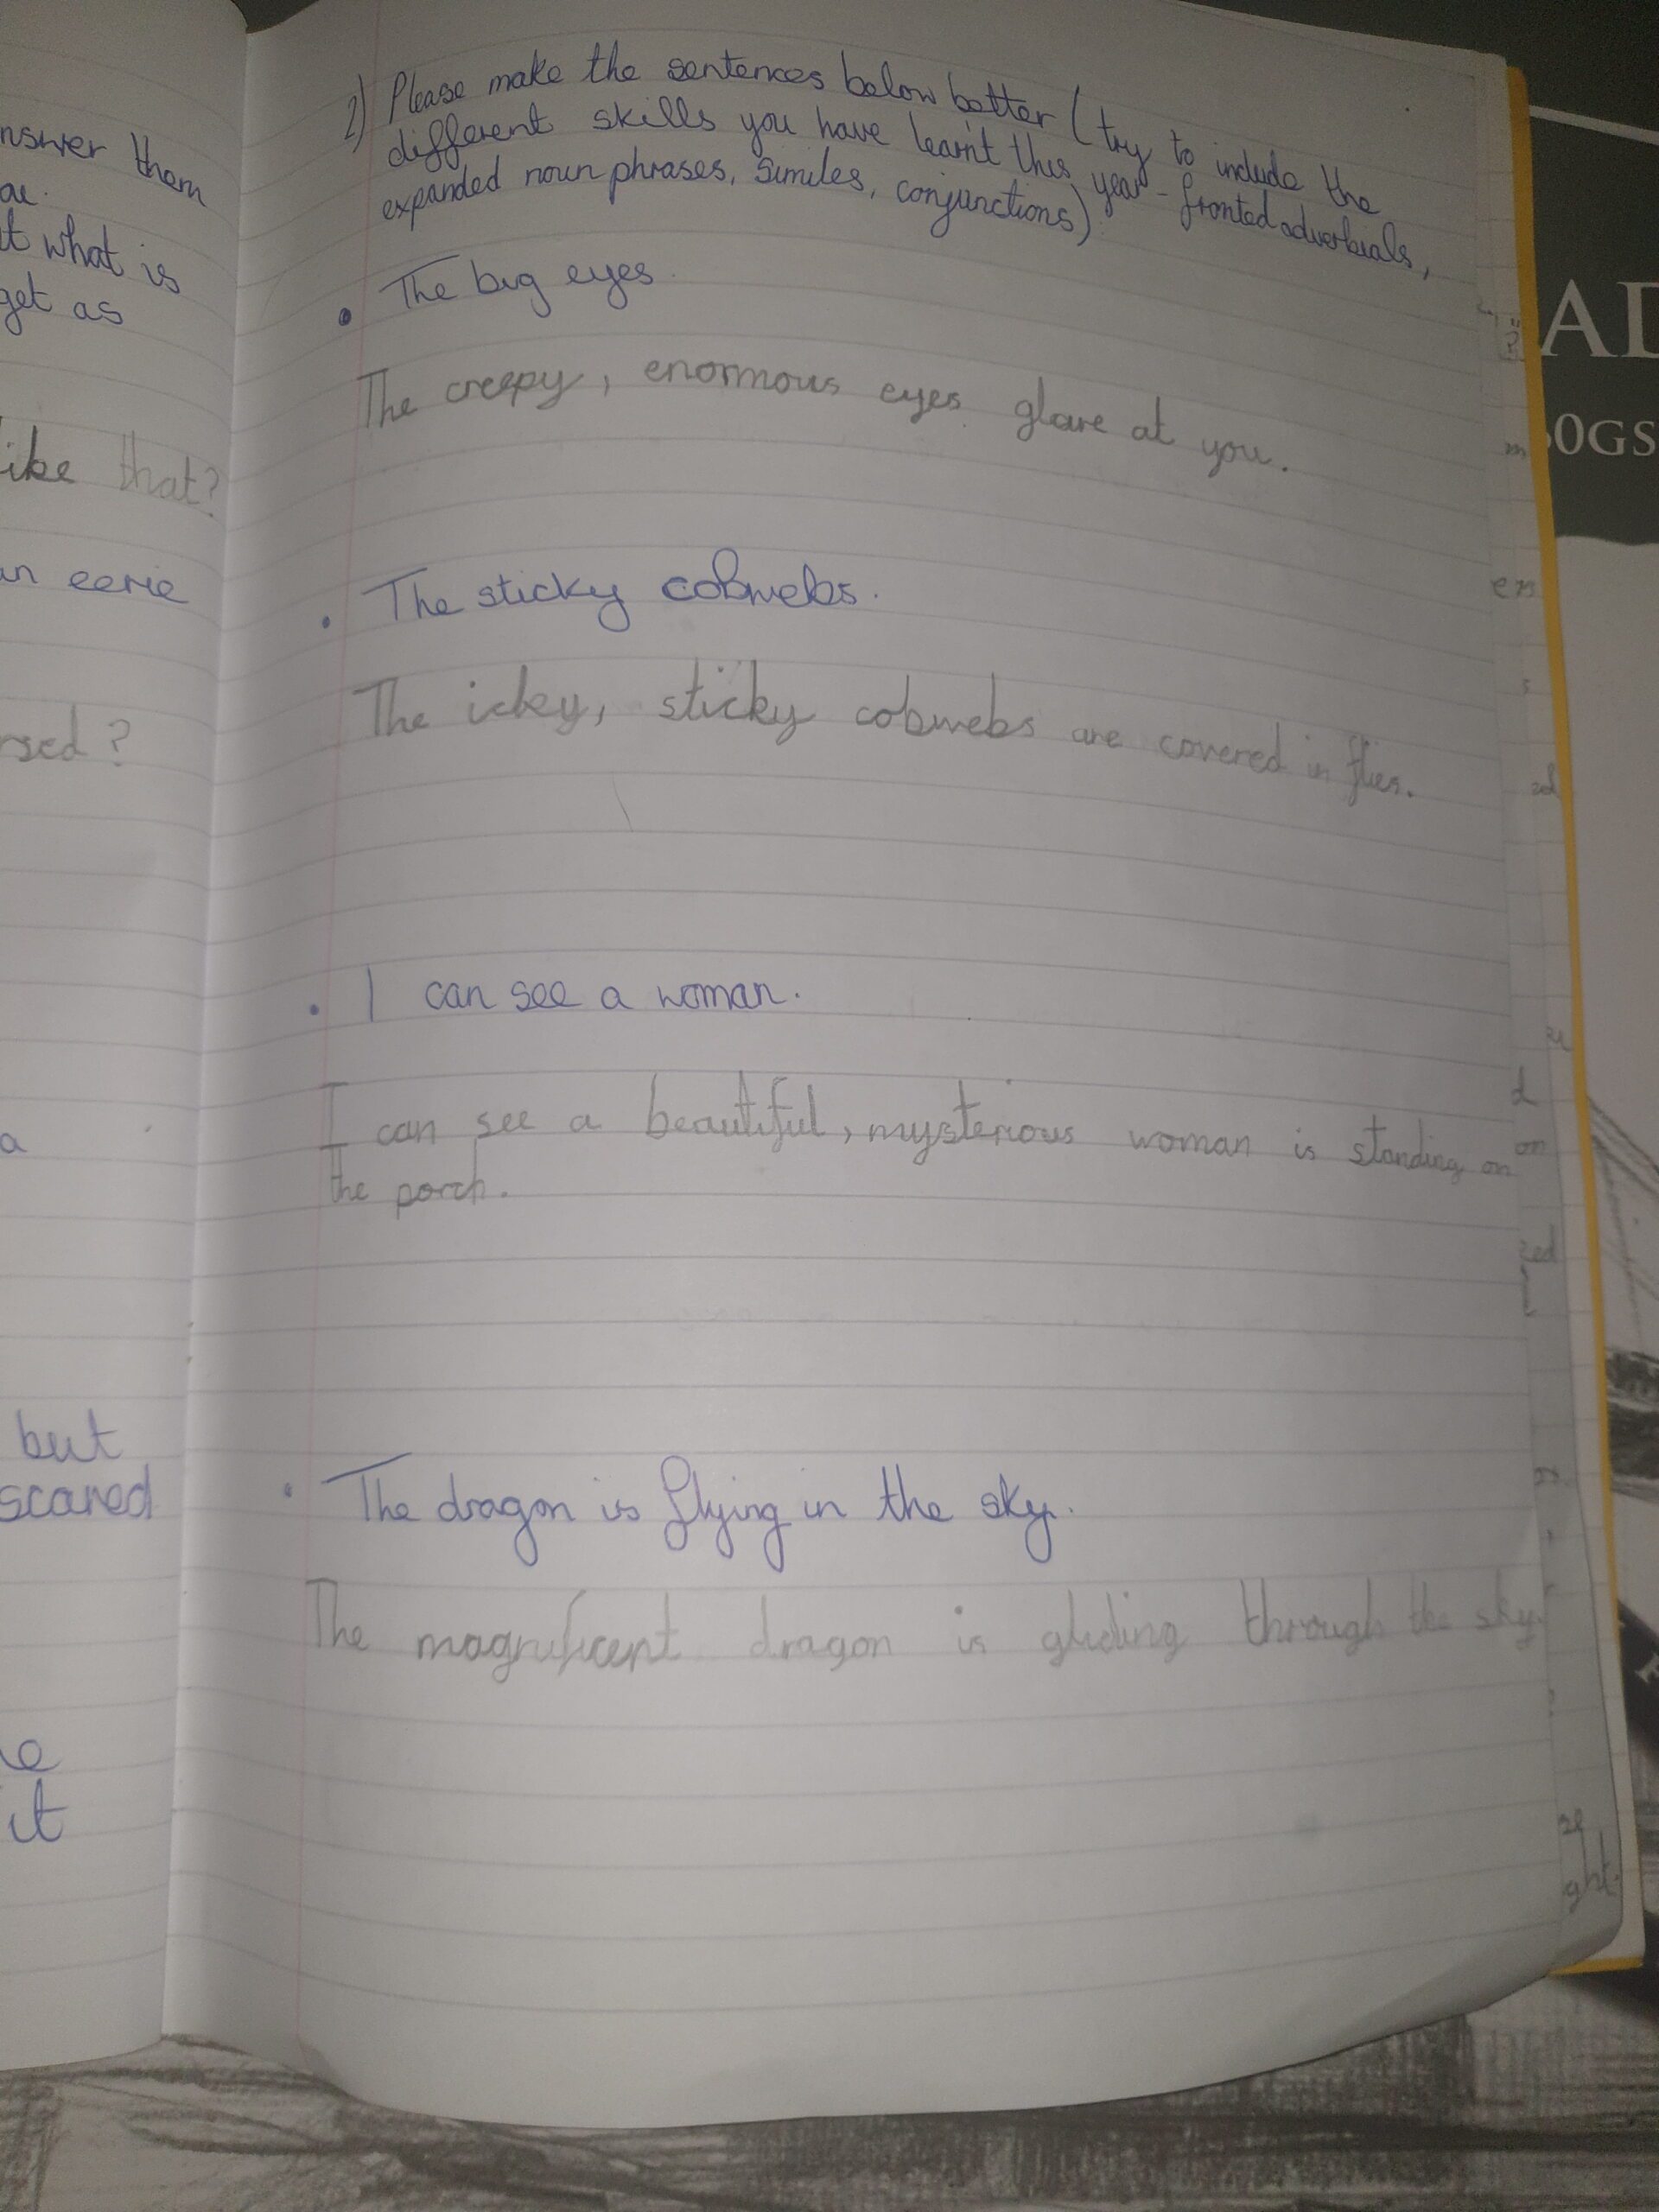 nswer them
t what is
get as
ike that?
an eerie
rsed?
a
but
scared
it
2) Please make the sentences below better (try to include the
different skills you have learnt this year - fronted adverbials,
expanded noun phrases, similes, conjunctions)
• The big eyes.
The creepy, enormous eyes glare at you.
• The sticky cobwebs.
The icky, sticky cobwebs are covered in flies.
• I can see a woman.
I can see a beautiful, mysterious woman is standing on
the porch.
• The dragon is flying in the sky.
The magnificent dragon is gliding through the sky.
?
m
en
s
d
on
zed
ght.
AD
0GS